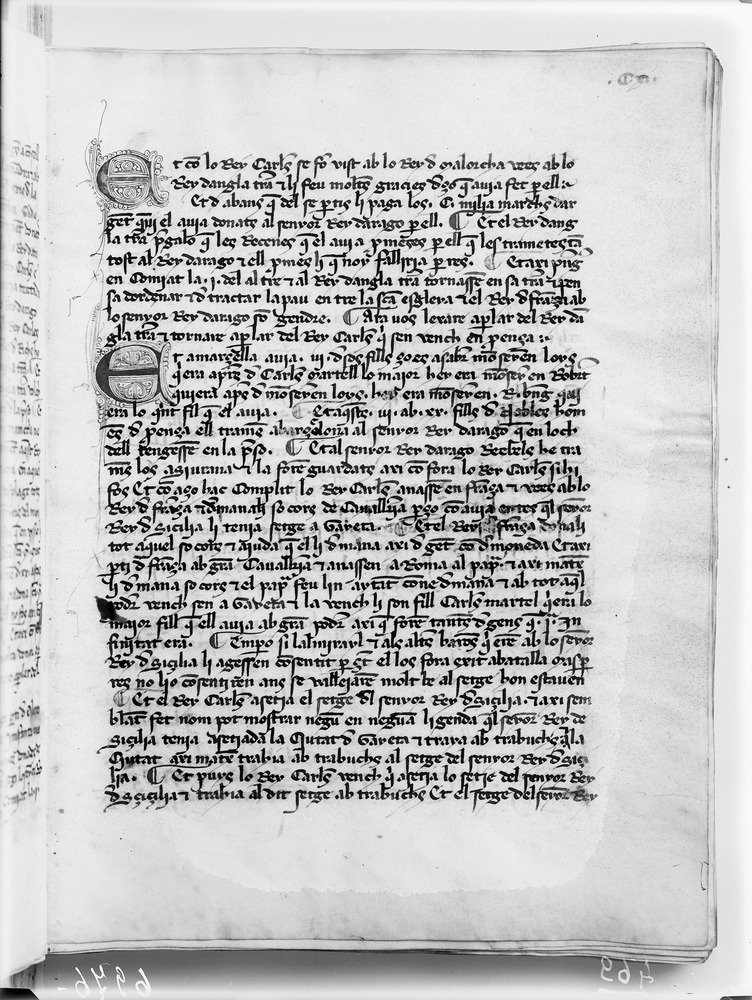 .Cxi.
Et cō lo Rey Carlẹs se fo vist ab lo Rey d̄ Malorcha e ab lo
Rey dangla t̄ra ⁊ li feu moltes gracies d̄ço q̄ auia fet p̱ ell:~
Et d̄ abans q̄ del se p̱tis li paga los .C. milia marchs dar
get q̄ui el auia donats al senyor Rey darago p̱ ell. ¶ Et el Rey dang
la t̄ra p̱galo q̄ les Recenes q̄ el auia p̱meses p̱ ell q̄ les trametes tā
tost al Rey darago ⁊ ell p̱mes li q̄ noy falliria p̱ res. ¶ Et axi p̱ng
en Comiat la .i. del altre ⁊ al Rey dangla t̄ra tornassē en sa t̄ra ⁊ pen
sa dordenar ⁊ d̄ tractar la pau en tre la sc̄a esgleya ⁊ el Rey d̄ frāza ab
lo senyor Rey darago so gendre. ¶ Ara uos lexare a p̱lar del Rey dā
gla t̄ra ⁊ tornare a p̱lar del Rey Carlẹs q̄ sen vench en p̱ença:~
Et a marçella auia .iii. d̄ sos fills ço es a saber mōser en Loys
q̄ era ap̱res d̄ Carles martell lo maior hey era mōser en Robrt
qui era ap̱s d̄ moseren loys. hey era mōser en .R. bn̄g qui
era lo q̄nt fil q̄ el auia. ¶ Et aq̄sts .iii. ab .xx. fills d̄ Nobles hom
es d̄ p̱ença ell trames a barçelona al senyor Rey darago q̄ en loch
dell tengessē en la p̱so. ¶ Et al senyor Rey darago Reebels he tra
mes los a Siurana ⁊ la foren guardats axi cō fora lo Rey Carles si hi
fos Et cō aço hac Complit lo Rey Carles anassē en frāça ⁊ vees ab lo
Rey d̄ frāça ⁊ d̄manali so cors de Cauallr̄ia p̱ ço cō auia entes q̄l senyor
Rey d̄ Sicilia li tenia setge a Gayeta. ¶ Et el Rey d̄ frāça donali
tot aquel so cors ⁊ aiuda q̄ ell li d̄mana axi d̄ gēt cō d̄ moneda Et axi
p̱ti d̄ frāça ab grā Cauallr̄ia ⁊ anassen a Roma al papa ⁊ axi mateix
li d̄mana so cors ⁊ el papa feu lin aytāt cō ne d̄mana ⁊ ab tot aq̄l
poder vench sen a Gayeta ⁊ la vench li son fill Carles martel q̄ era lo
maior fill q̄ ell auia ab grā poder axi q̄ foren tantes d̄ gens q̄ .i. In
finitat era. ¶ Empo si lalmirayl ⁊ als altrs barōs q̄ erē ab lo senyor
Rey d̄ Sicilia li agessen cōsentit p̱ cert el los fora exit abatalla mas p̱
res no lio cōsentirē ans se valleiarē molt be al setge hon estauen
¶ Et el Rey Carles asetia el setge d̄l senyor Rey d̄ Siçilia. ⁊ axi sem
blāt fet nom pot mostrar negū en neguā ligenda q̄l senyor Rey de
Siçilia tenia asetiada la Ciutat d̄ Gayeta ⁊ traya ab trabuchs a la
Ciutat axi mateix trahia ab trabuchs al setge del senyor Rey d̄ Siçi
lia. ¶ Et puys lo Rey Carles vench q̄ asetia lo setie del senyor Rey
d̄ Siçilia ⁊ trahia al dit setge ab trabuchs Et el setge del senyor Rey
469
6976